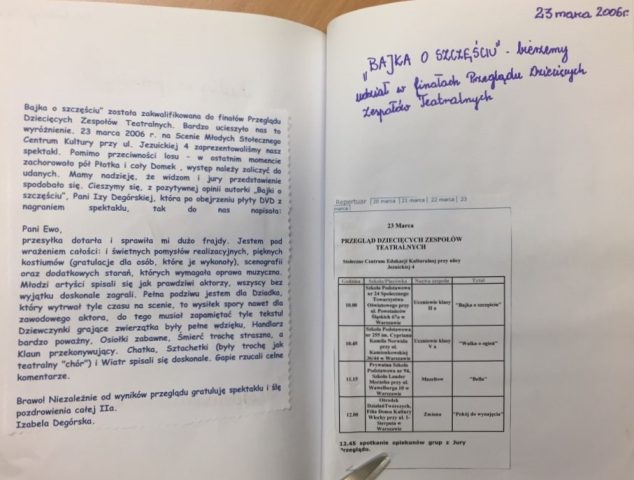 Bajka o szczęściu" została zakwalifikowana do finałów Przeglądu
Dziecięcych Zespołów Teatralnych. Bardzo ucieszyło nas to
wyróżnienie. 23 marca 2006 r. na Scenie Młodych Stołecznego
Centrum Kultury przy ul. Jezuickiej 4 zaprezentowaliśmy nasz
spektakl. Pomimo przeciwności losu - w ostatnim momencie
zachorowało pół Płotka i cały Domek , występ należy zaliczyć do
udanych. Mamy nadzieję, że widzom i jury przedstawienie
spodobało się. Cieszymy się, z pozytywnej opinii autorki „Bajki o
szczęściu", Pani Izy Degórskiej, która po obejrzeniu płyty DVD z
nagraniem spektaklu, tak do nas napisała:
Pani Ewo,
przesyłka dotarła i sprawiła mi dużo frajdy. Jestem pod
wrażeniem całości: i świetnych pomysłów realizacyjnych, pięknych
kostiumów (gratulacje dla osób, które je wykonały), scenografii
oraz dodatkowych starań, których wymagała oprawa muzyczna.
Młodzi artyści spisali się jak prawdziwi aktorzy, wszyscy bez
wyjątku doskonale zagrali. Pełna podziwu jestem dla Dziadka,
który wytrwał tyle czasu na scenie, to wysiłek spory nawet dla
zawodowego aktora, do tego musiał zapamiętać tyle tekstu
Dziewczynki grające zwierzątka były pełne wdzięku, Handlarz
bardzo poważny, Osiołki zabawne, Śmierć trochę straszna, a
Klaun przekonywujący. Chatka, Sztachetki (były trochę jak
teatralny "chór") i Wiatr spisali się doskonale. Gapie rzucali celne
komentarze.
Brawo! Niezależnie od wyników przeglądu gratuluję spektaklu i ślę
pozdrowienia całej IIa.
Izabela Degórska.
23 marca 2006r.
„BAJKA O SZCZĘŚCIU" - bierzemy
udział w finałach Przeglądu Dziecięcych
Zespołów Teatralnych
Repertuar | 20 marca | 21 marca | 22 marca | 23
marca |
23 Marca
PRZEGLĄD DZIECIĘCYCH ZESPOŁÓW
TEATRALNYCH
Stołeczne Centrum Edukacji Kulturalnej przy ulicy
Jezuickiej 4
Godzina Szkoła/Placówka Nazwa zespołu Tytuł
Szkoła Podstawowa
nr 24 Społecznego
Towarzystwa
10.00 Oświatowego przy Uczniowie klasy "Bajka o szczęściu"
ul. Powstańców II a
Śląskich 67a w
Warszawie
Szkoła Podstawowa
nr 255 im. Cypriana
10.45 Kamila Norwida Uczniowie klasy "Walka o ogień"
przy ul. V a
Kamionkowskiej
36/44 w Warszawie
Prywatna Szkoła
Podstawowa nr 94,
11.15 Szkoła Lauder "Bella"
Morasha przy ul.
Wawelberga 10 w
Warszawie
Ośrodek
Działań Twórczych,
12.00 Filia Domu Kultury Zmiana "Pokój do wynajęcia"
Włochy przy ul. 1-
Sierpnia w
Warszawie
12.45 spotkanie opiekunów grup z Jury
Przeglądu.